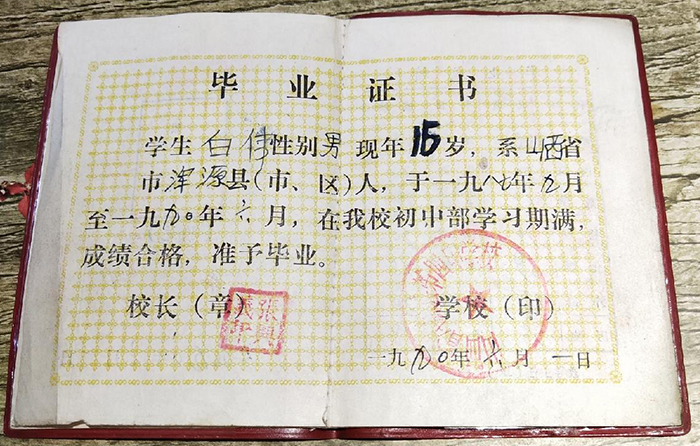 毕业证书
学生白伟性别男现年16岁，系山西省
市浑源县（市、区）人，于一九八七年九月
至一九九〇年六月，在我校初中部学习期满，
成绩合格，准予毕业。
校长（章） 学校（印）
一九九〇年六月一日